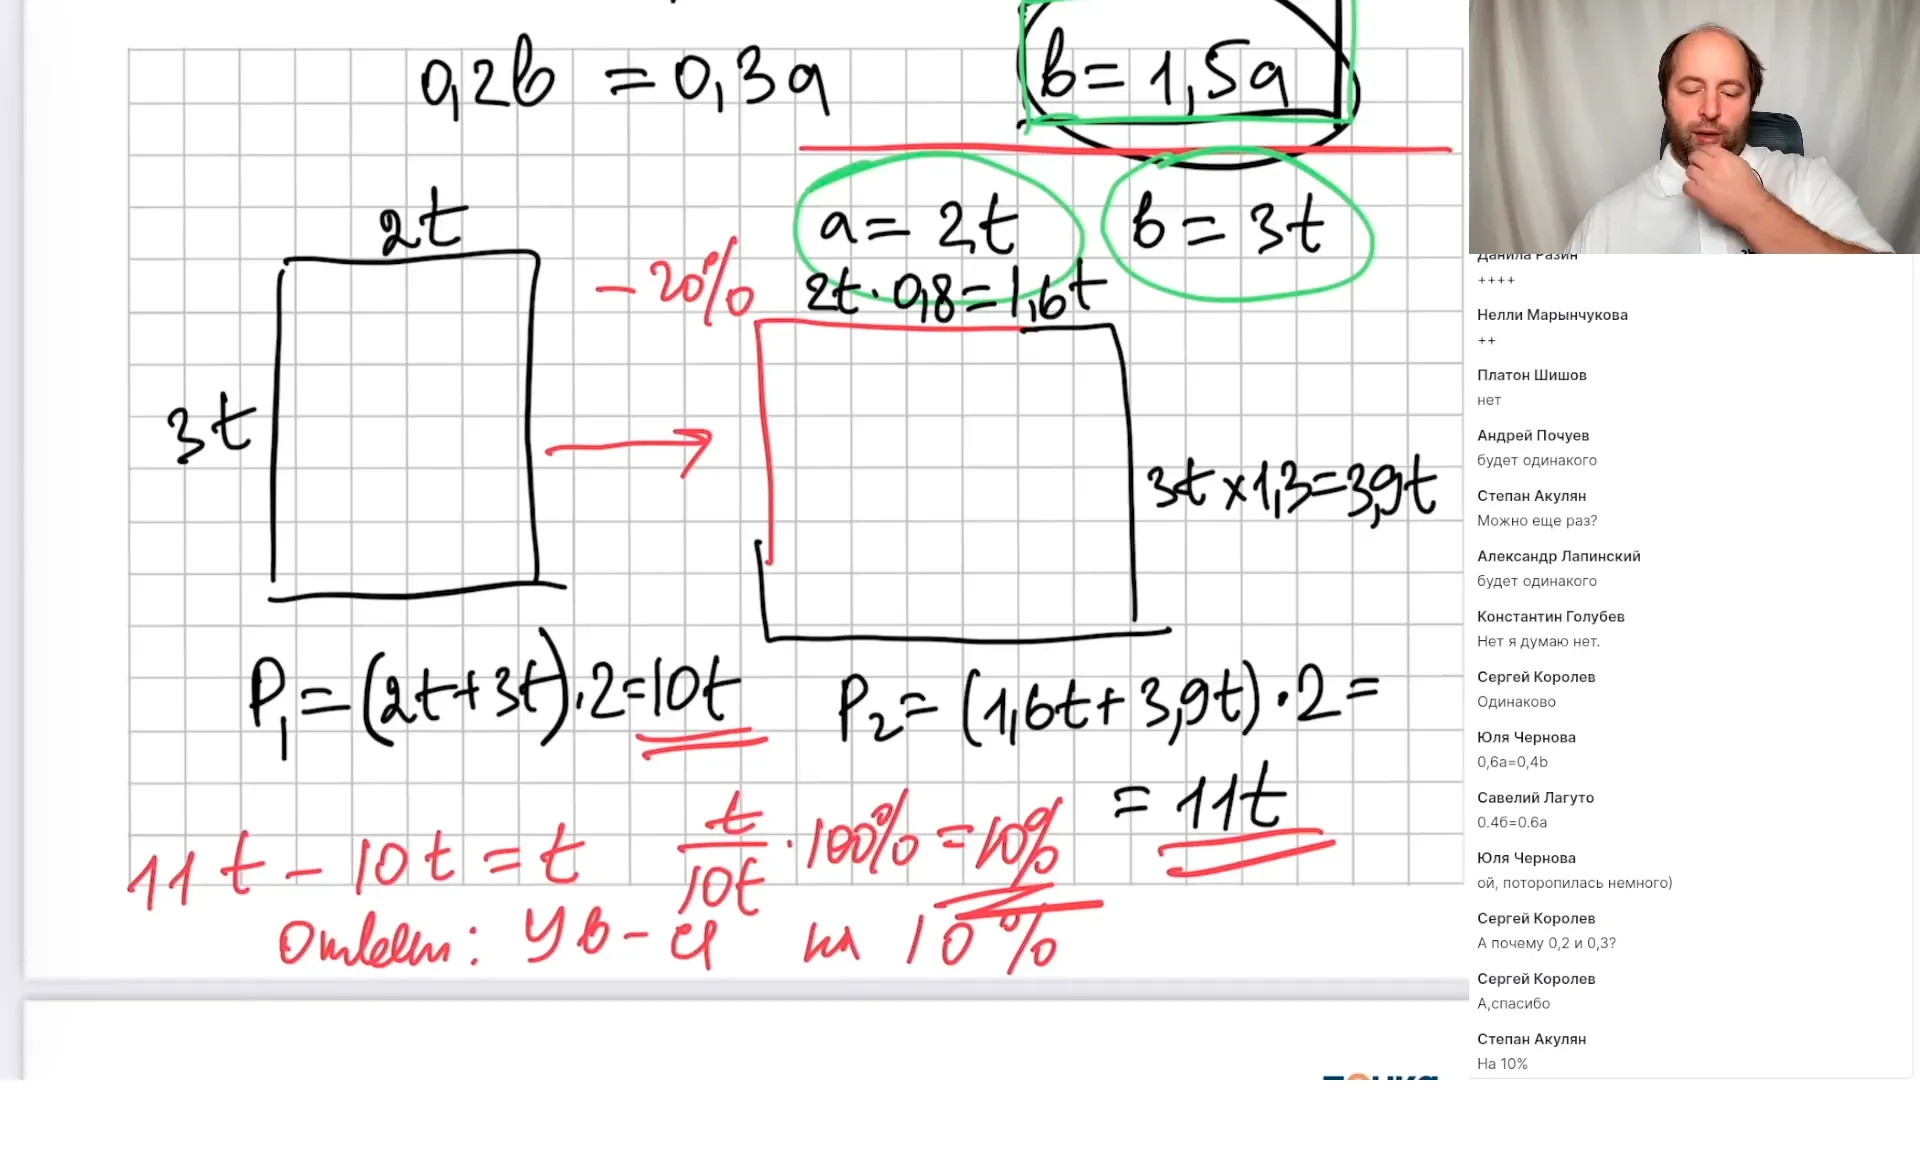 0,2b = 0,3a
b = 1,5a
2t
a = 2t
b = 3t
-20%
2t·0,8=1,6t
3t
3t×1,3=3,9t
P₁=(2t+3t)·2=10t
P₂=(1,6t+3,9t)·2=
= 11t
11t - 10t = t
t/10t ·100%=10%
Ответ: ув-ся на 10%
Данила Разин
++++
Нелли Марынчукова
++
Платон Шишов
нет
Андрей Почуев
будет одинакого
Степан Акулян
Можно еще раз?
Александр Лапинский
будет одинакого
Константин Голубев
Нет я думаю нет.
Сергей Королев
Одинаково
Юля Чернова
0,6a=0,4b
Савелий Лагуто
0.4б=0.6а
Юля Чернова
ой, поторопилась немного)
Сергей Королев
А почему 0,2 и 0,3?
Сергей Королев
А,спасибо
Степан Акулян
На 10%